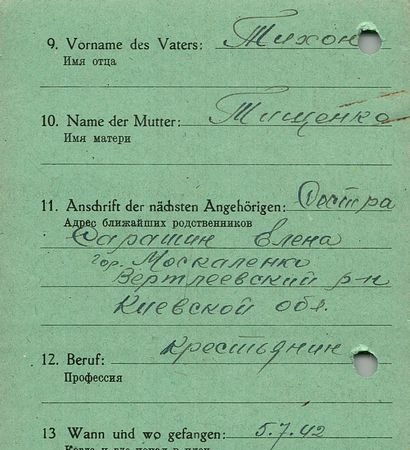 9. Vorname des Vaters: Тихон
Имя отца
10. Name der Mutter: Тищенко
Имя матери
11. Anschrift der nächsten Angehörigen: Состра
Адрес ближайших родственников
Сарашин Елена
гор. Москаленко
Вертлеевский р-н
Киевской обл.
12. Beruf: крестьянин
Профессия
13 Wann und wo gefangen: 5.7.42
Когда и где попал в плен